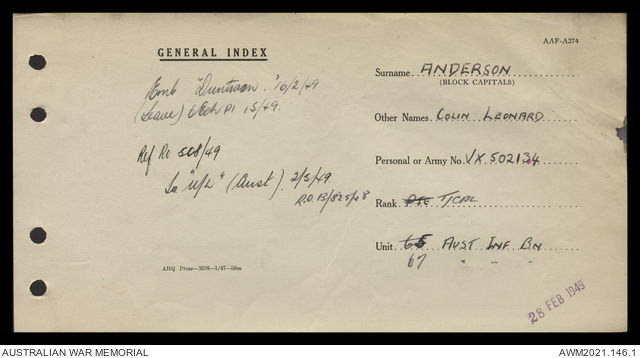 AAF-A274
GENERAL INDEX
Emb "Duntroon." 16/2/49
(Leave) Pl 15/49.
Ref Re 508/49
"U/L" (Aust). 2/5/49.
R.O. 13/825/48
AHQ Press—3598—1/47—50m
Surname. ANDERSON
(BLOCK CAPITALS)
Other Names. COLIN LEONARD
Personal or Army No. VX 502134
Rank. Pte T/CPL
Unit. 65 AUST INF BN
67 " " "
28 FEB 1949
AUSTRALIAN WAR MEMORIAL
AWM2021.146.1